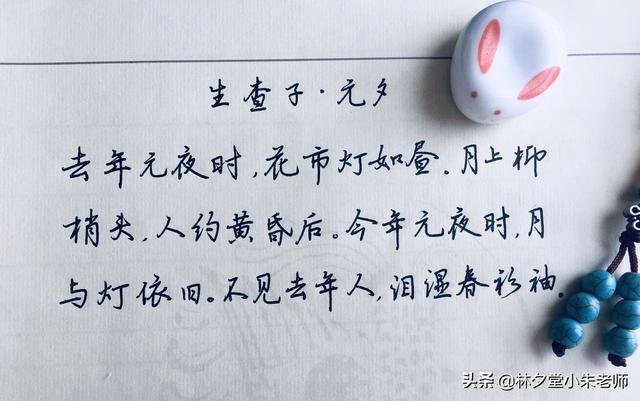 生查子·元夕
去年元夜时,花市灯如昼.月上柳
梢头,人约黄昏后。今年元夜时,月
与灯依旧。不见去年人,泪湿春衫袖.
头条@林夕堂小朱老师